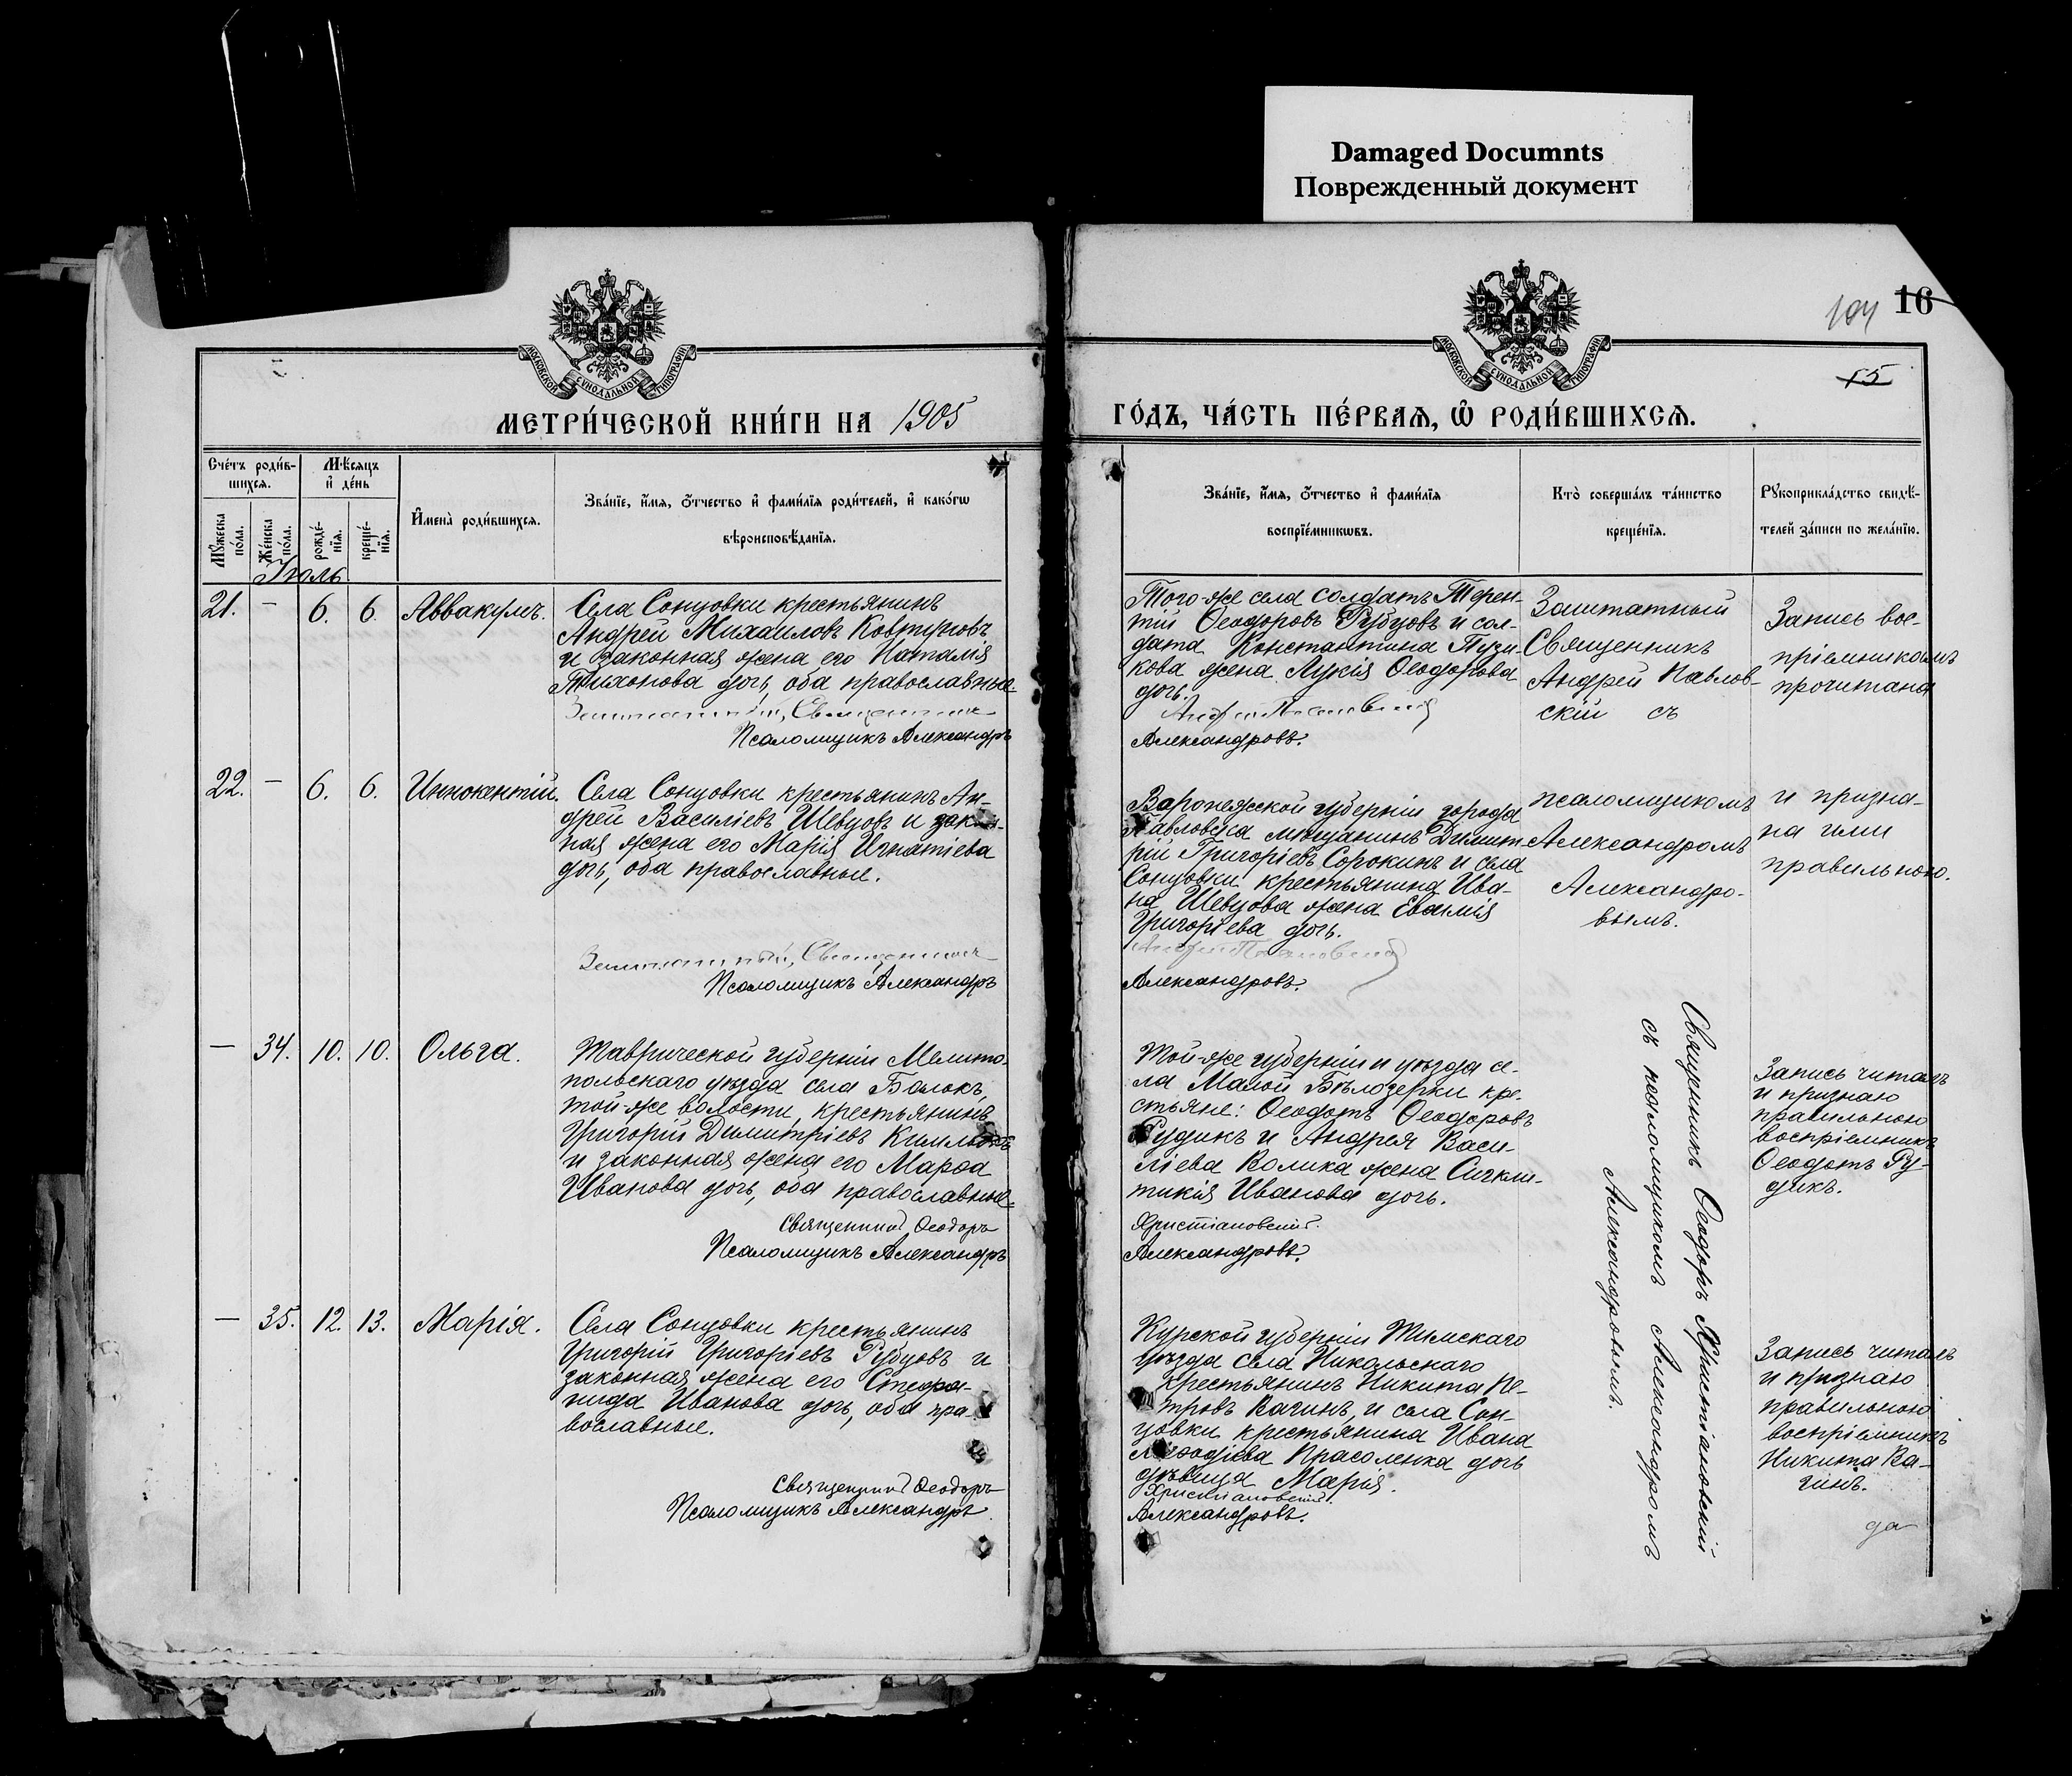 Damaged Documnts
Поврежденный документ
104 16
15
МОСКОВСКОЙ СУНОДАЛЬНОЙ ТИПОГРАФІИ
МОСКОВСКОЙ СУНОДАЛЬНОЙ ТИПОГРАФІИ
МЕТРИ́ЧЕСКОЙ КНИ́ГИ НА 1905
ГО́ДЪ, ЧА́СТЬ ПЕ́РВАЯ, Ѡ РОДИ́ВШИХСЯ.
Сче́тъ роди́в-
шихся.
Мѣсяцъ
и де́нь
Му́жеска по́ла.
Же́нска по́ла.
рожде́-
нїя.
креще́-
нїя.
Имена̀ роди́вшихся.
Зва́нїе, и́мя, о́тчество и фами́лїя роди́телей, и како́гѡ
вѣроисповѣ́данїя.
Зва́нїе, и́мя, о́тчество и фами́лїя
воспрїе́мникѡвъ.
Кто̀ соверша́лъ та́инство
креще́нїя.
Рукоприкла́дство свидѣ́-
телей за́писи по жела́нїю.
Іюль
21. — 6. 6. Аввакумъ.
Села Сонцовки крестьянинъ
Андрей Михаиловъ Ковтуновъ
и законная жена его Наталія
Тихонова дочь, оба православные.
Заштатный, Священникъ
Псаломщикъ Александръ
Того-же села солдатъ Терен-
тій Ѳеодоровъ Рубцовъ и сол-
дата Константина Пузи-
кова жена Лукія Ѳеодорова
дочь.
Андрей Павловскій
Александровъ.
Заштатный
Священникъ
Андрей Павлов-
скій съ
Запись вос-
пріемникомъ
прочитана
22. — 6. 6. Иннокентій.
Села Сонцовки крестьянинъ Ан-
дрей Василіевъ Шевцовъ и закон-
ная жена его Марія Игнатіева
дочь, оба православные.
Заштатный, Священникъ
Псаломщикъ Александръ
Варонежской губерніи города
Павловска мещанинъ Димит-
рій Григоріевъ Сорокинъ и села
Сонцовки крестьянина Ива-
на Шевцова жена Евѳимія
Григоріева дочь.
Андрей Павловскій
Александровъ.
псаломщикомъ
Александромъ
Александро-
вымъ.
и призна-
на ими
правильною.
— 34. 10. 10. Ольга.
Таврической губерніи Мелито-
польскаго уѣзда села Балокъ,
той-же волости, крестьянинъ
Григорій Димитріевъ
и законная жена его Марѳа
Иванова дочь, оба православные.
Священникъ Ѳеодоръ
Псаломщикъ Александръ
Той-же губерніи и уѣзда се-
ла Малой Бѣлозерки кре-
стьяне: Ѳеодотъ Ѳеодоровъ
Рудикъ и Андрея Васи-
ліева Волика жена Сигкли-
тикія Иванова дочь.
Христіановскій.
Александровъ.
Священникъ Ѳеодоръ Христіановскій
съ псаломщикомъ Александромъ
Александровымъ.
Запись читалъ
и признаю
правильною
воспріемникъ
Ѳеодотъ Ру-
дикъ.
— 35. 12. 13. Марія.
Села Сонцовки крестьянинъ
Григорій Григоріевъ Рубцовъ и
законная жена его Стефа-
нида Иванова дочь, оба пра-
вославные.
Священникъ Ѳеодоръ
Псаломщикъ Александръ.
Курской губерніи Тимскаго
уѣзда села Никольскаго
крестьянинъ Никита Пе-
тровъ Вагинъ, и села Сон-
цовки крестьянина Ивана
Меѳодіева Красоленка дочь
дѣвица Марія.
Христіановскій.
Александровъ.
Запись читалъ
и признаю
правильною
воспріемникъ
Никита Ва-
гинъ.
да